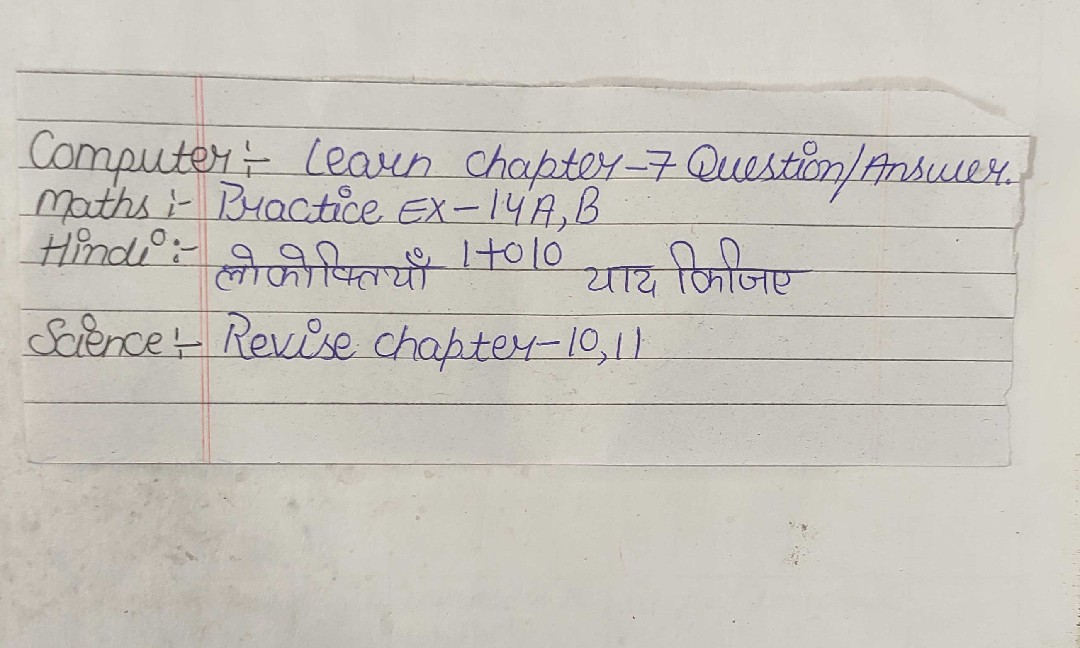 Computer :- Learn Chapter-7 Question/Answer.
Maths :- Practice EX-14A,B
Hindi :- लोकोक्तियाँ 1to10 याद किजिए
Science :- Revise chapter-10,11